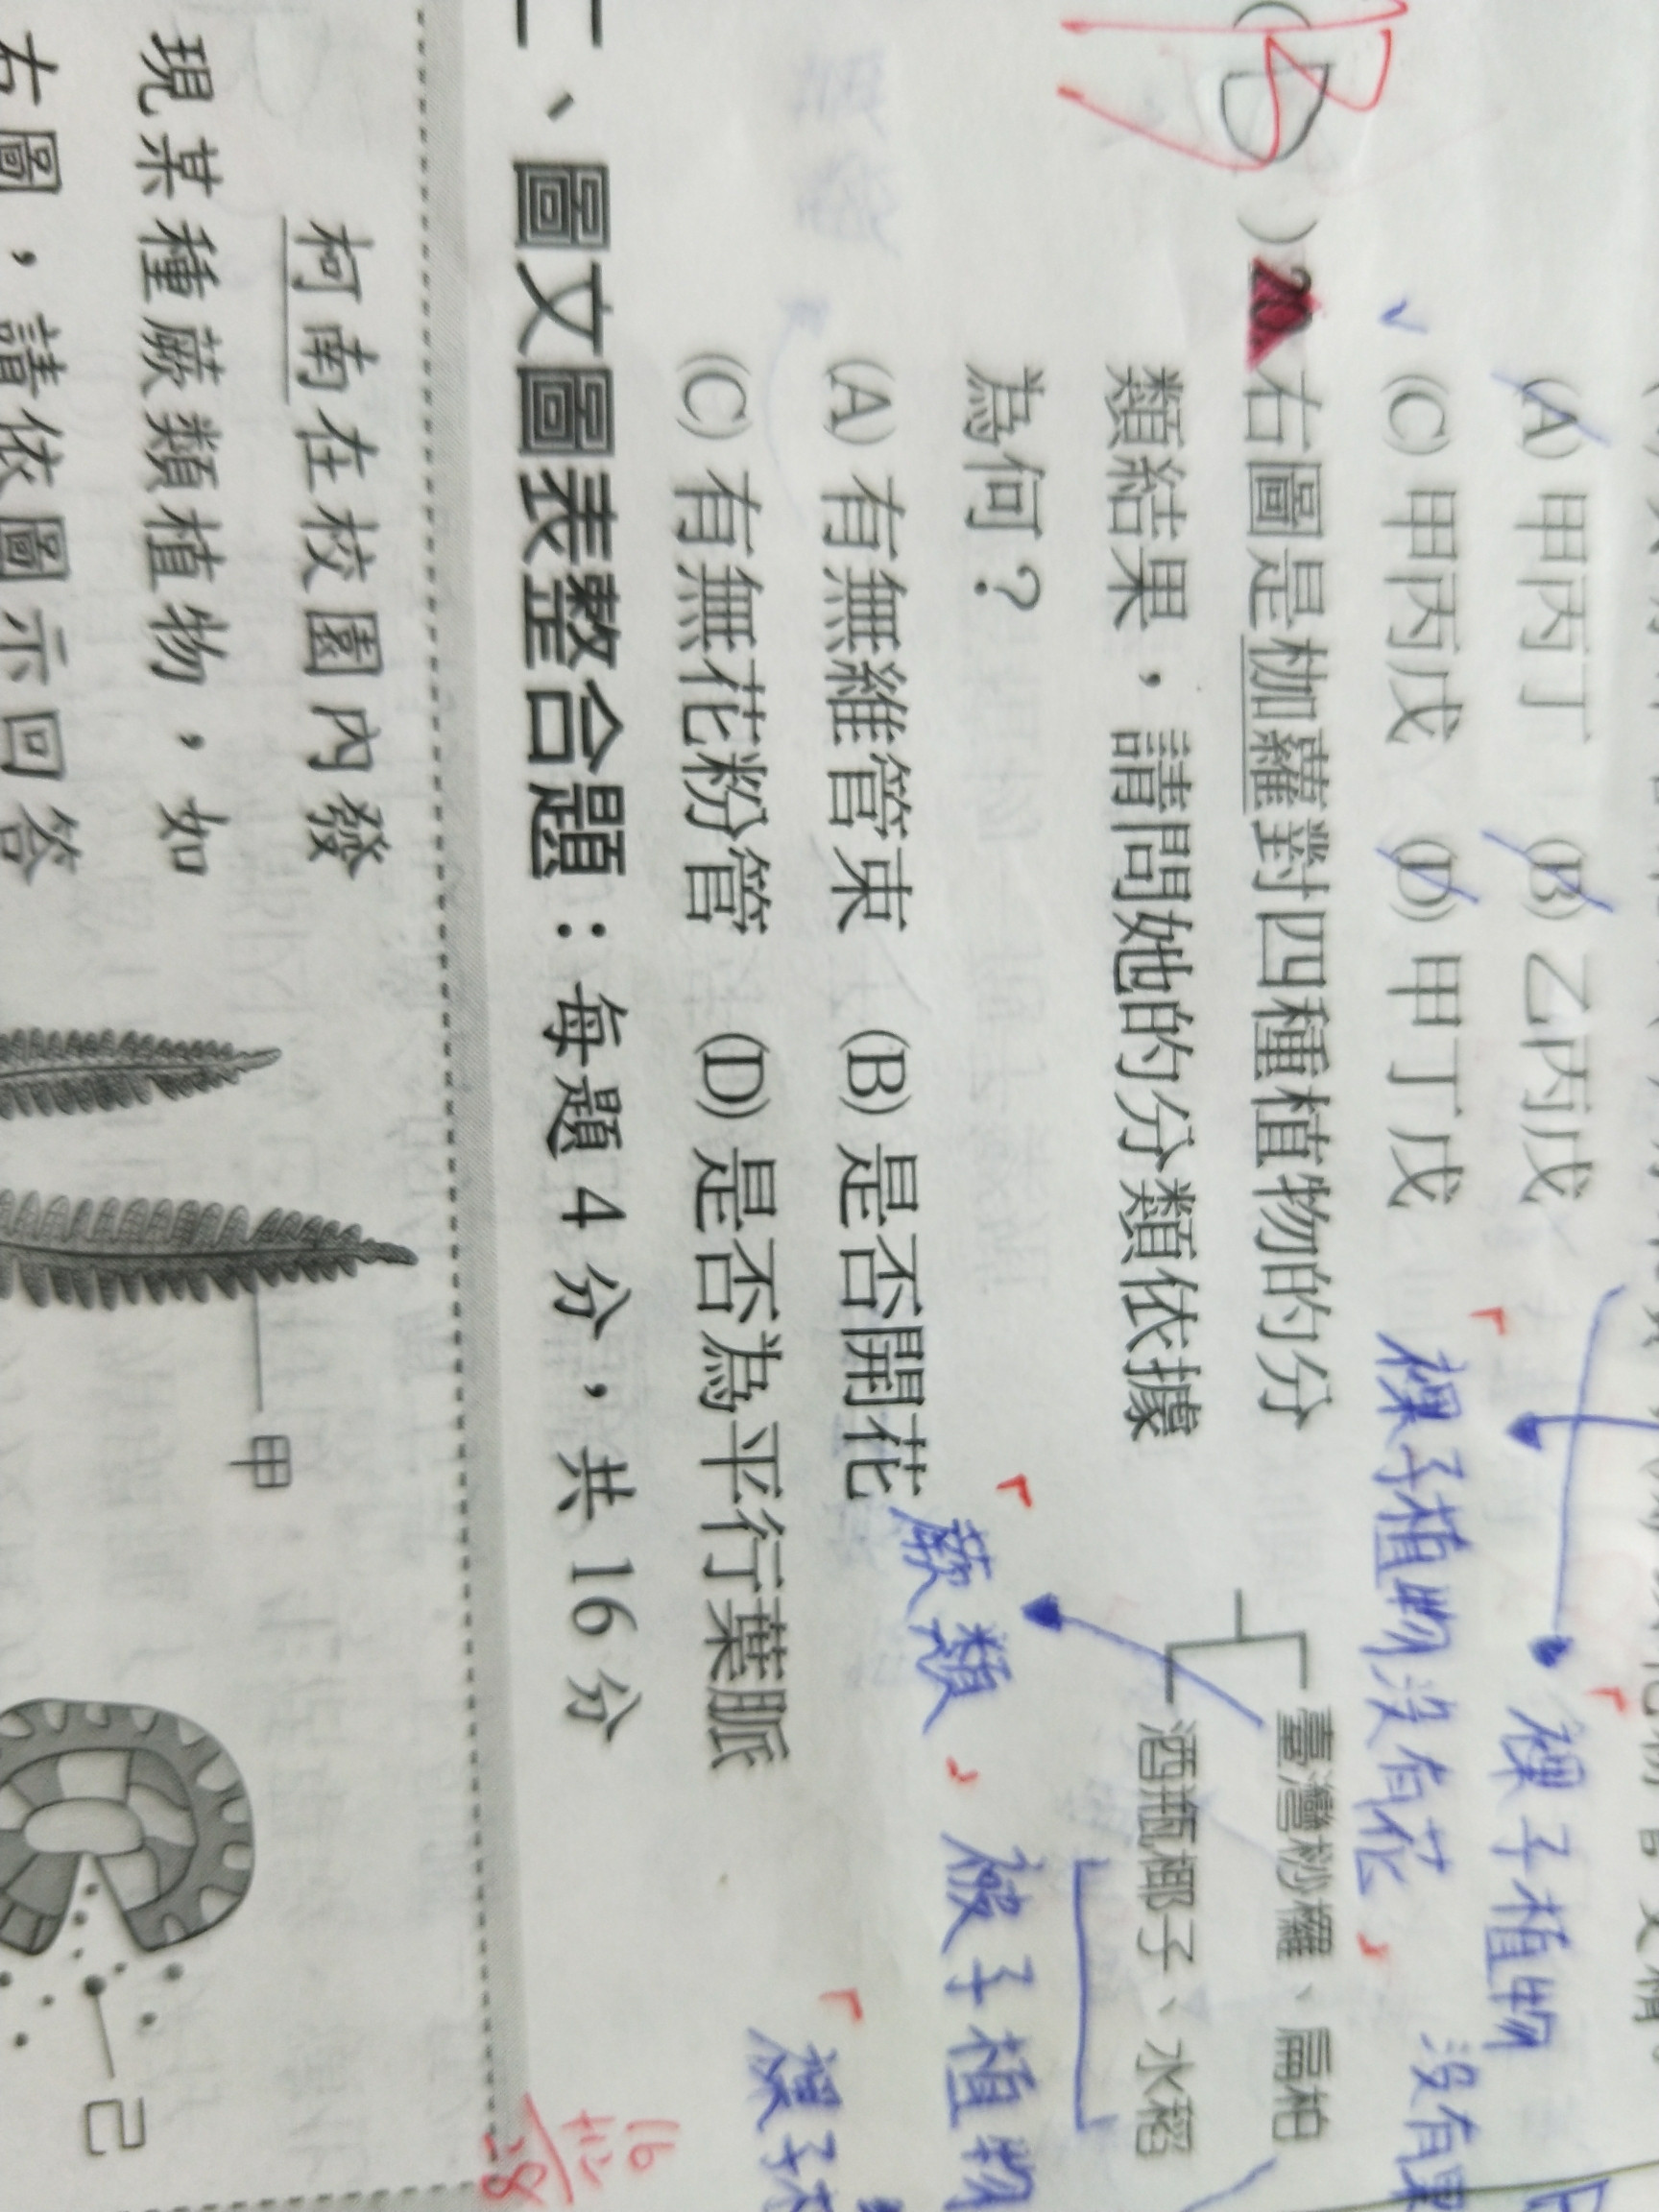 (A) 甲丙丁 (B) 乙丙戊
(C) 甲丙戊 (D) 甲丁戊
裸子植物
裸子植物沒有花
沒有果
B
( D ) 20. 右圖是枷蘿對四種植物的分
類結果，請問她的分類依據
為何？
臺灣桫欏、扁柏
酒瓶椰子、水稻
蕨類
被子植物
(A) 有無維管束 (B) 是否開花
(C) 有無花粉管 (D) 是否為平行葉脈
裸子
二、圖文圖表整合題：每題 4 分，共 16 分
柯南在校園內發
現某種蕨類植物，如
右圖，請依圖示回答
甲
己
16